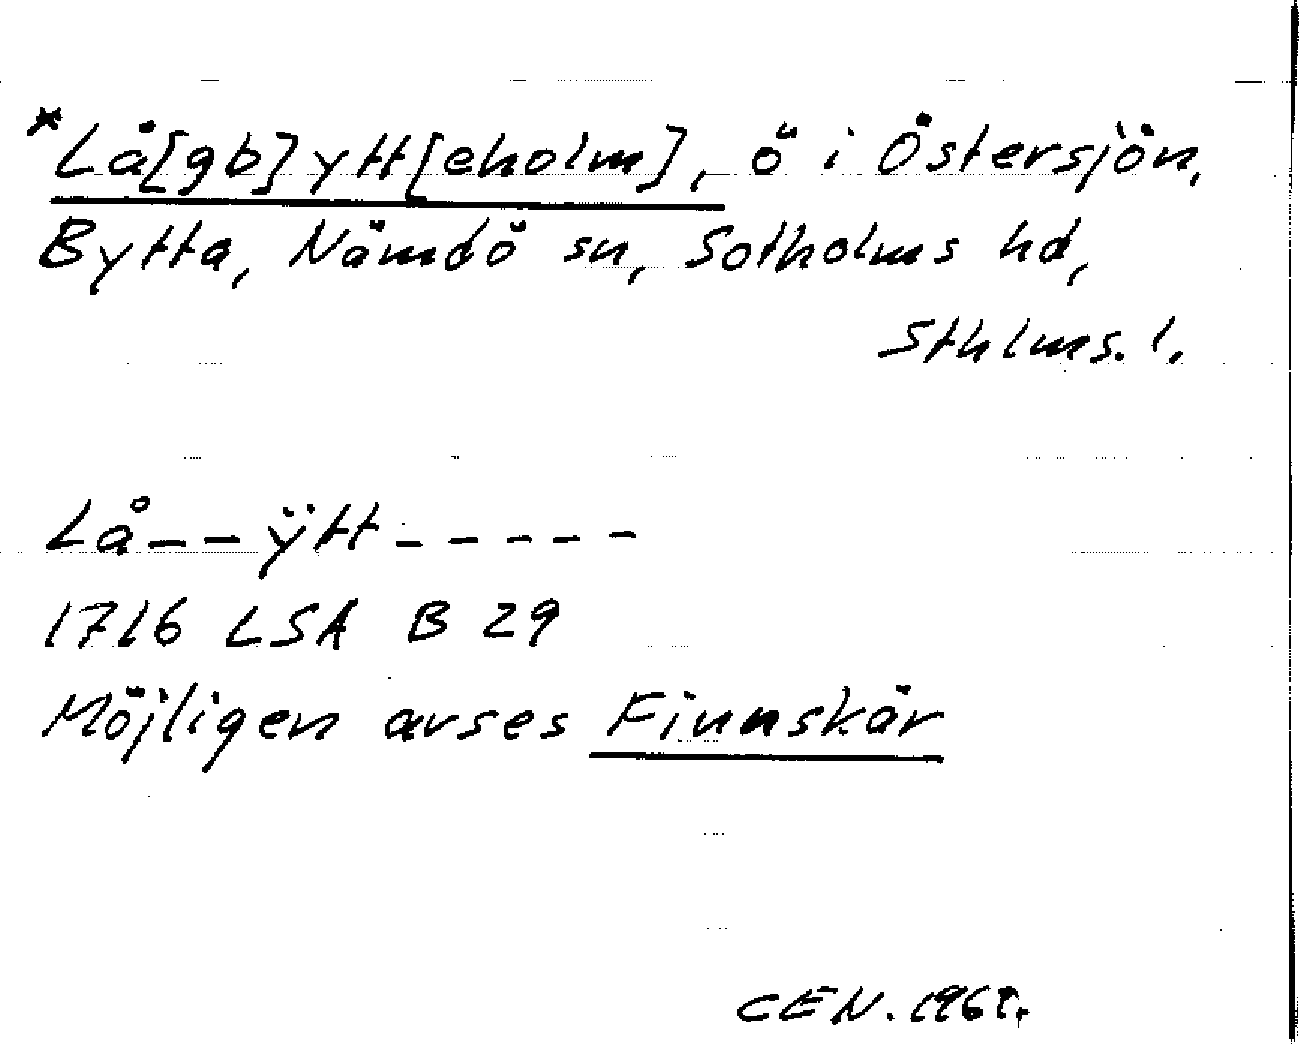 *Lå[gb]ytt[eholm], ö i Östersjön,
Bytta, Nämdö sn, Sotholms hd,
Sthlms. l.
Lå--ÿtt-----
1716 LSA B 29
Möjligen avses Finnskär
CEN.